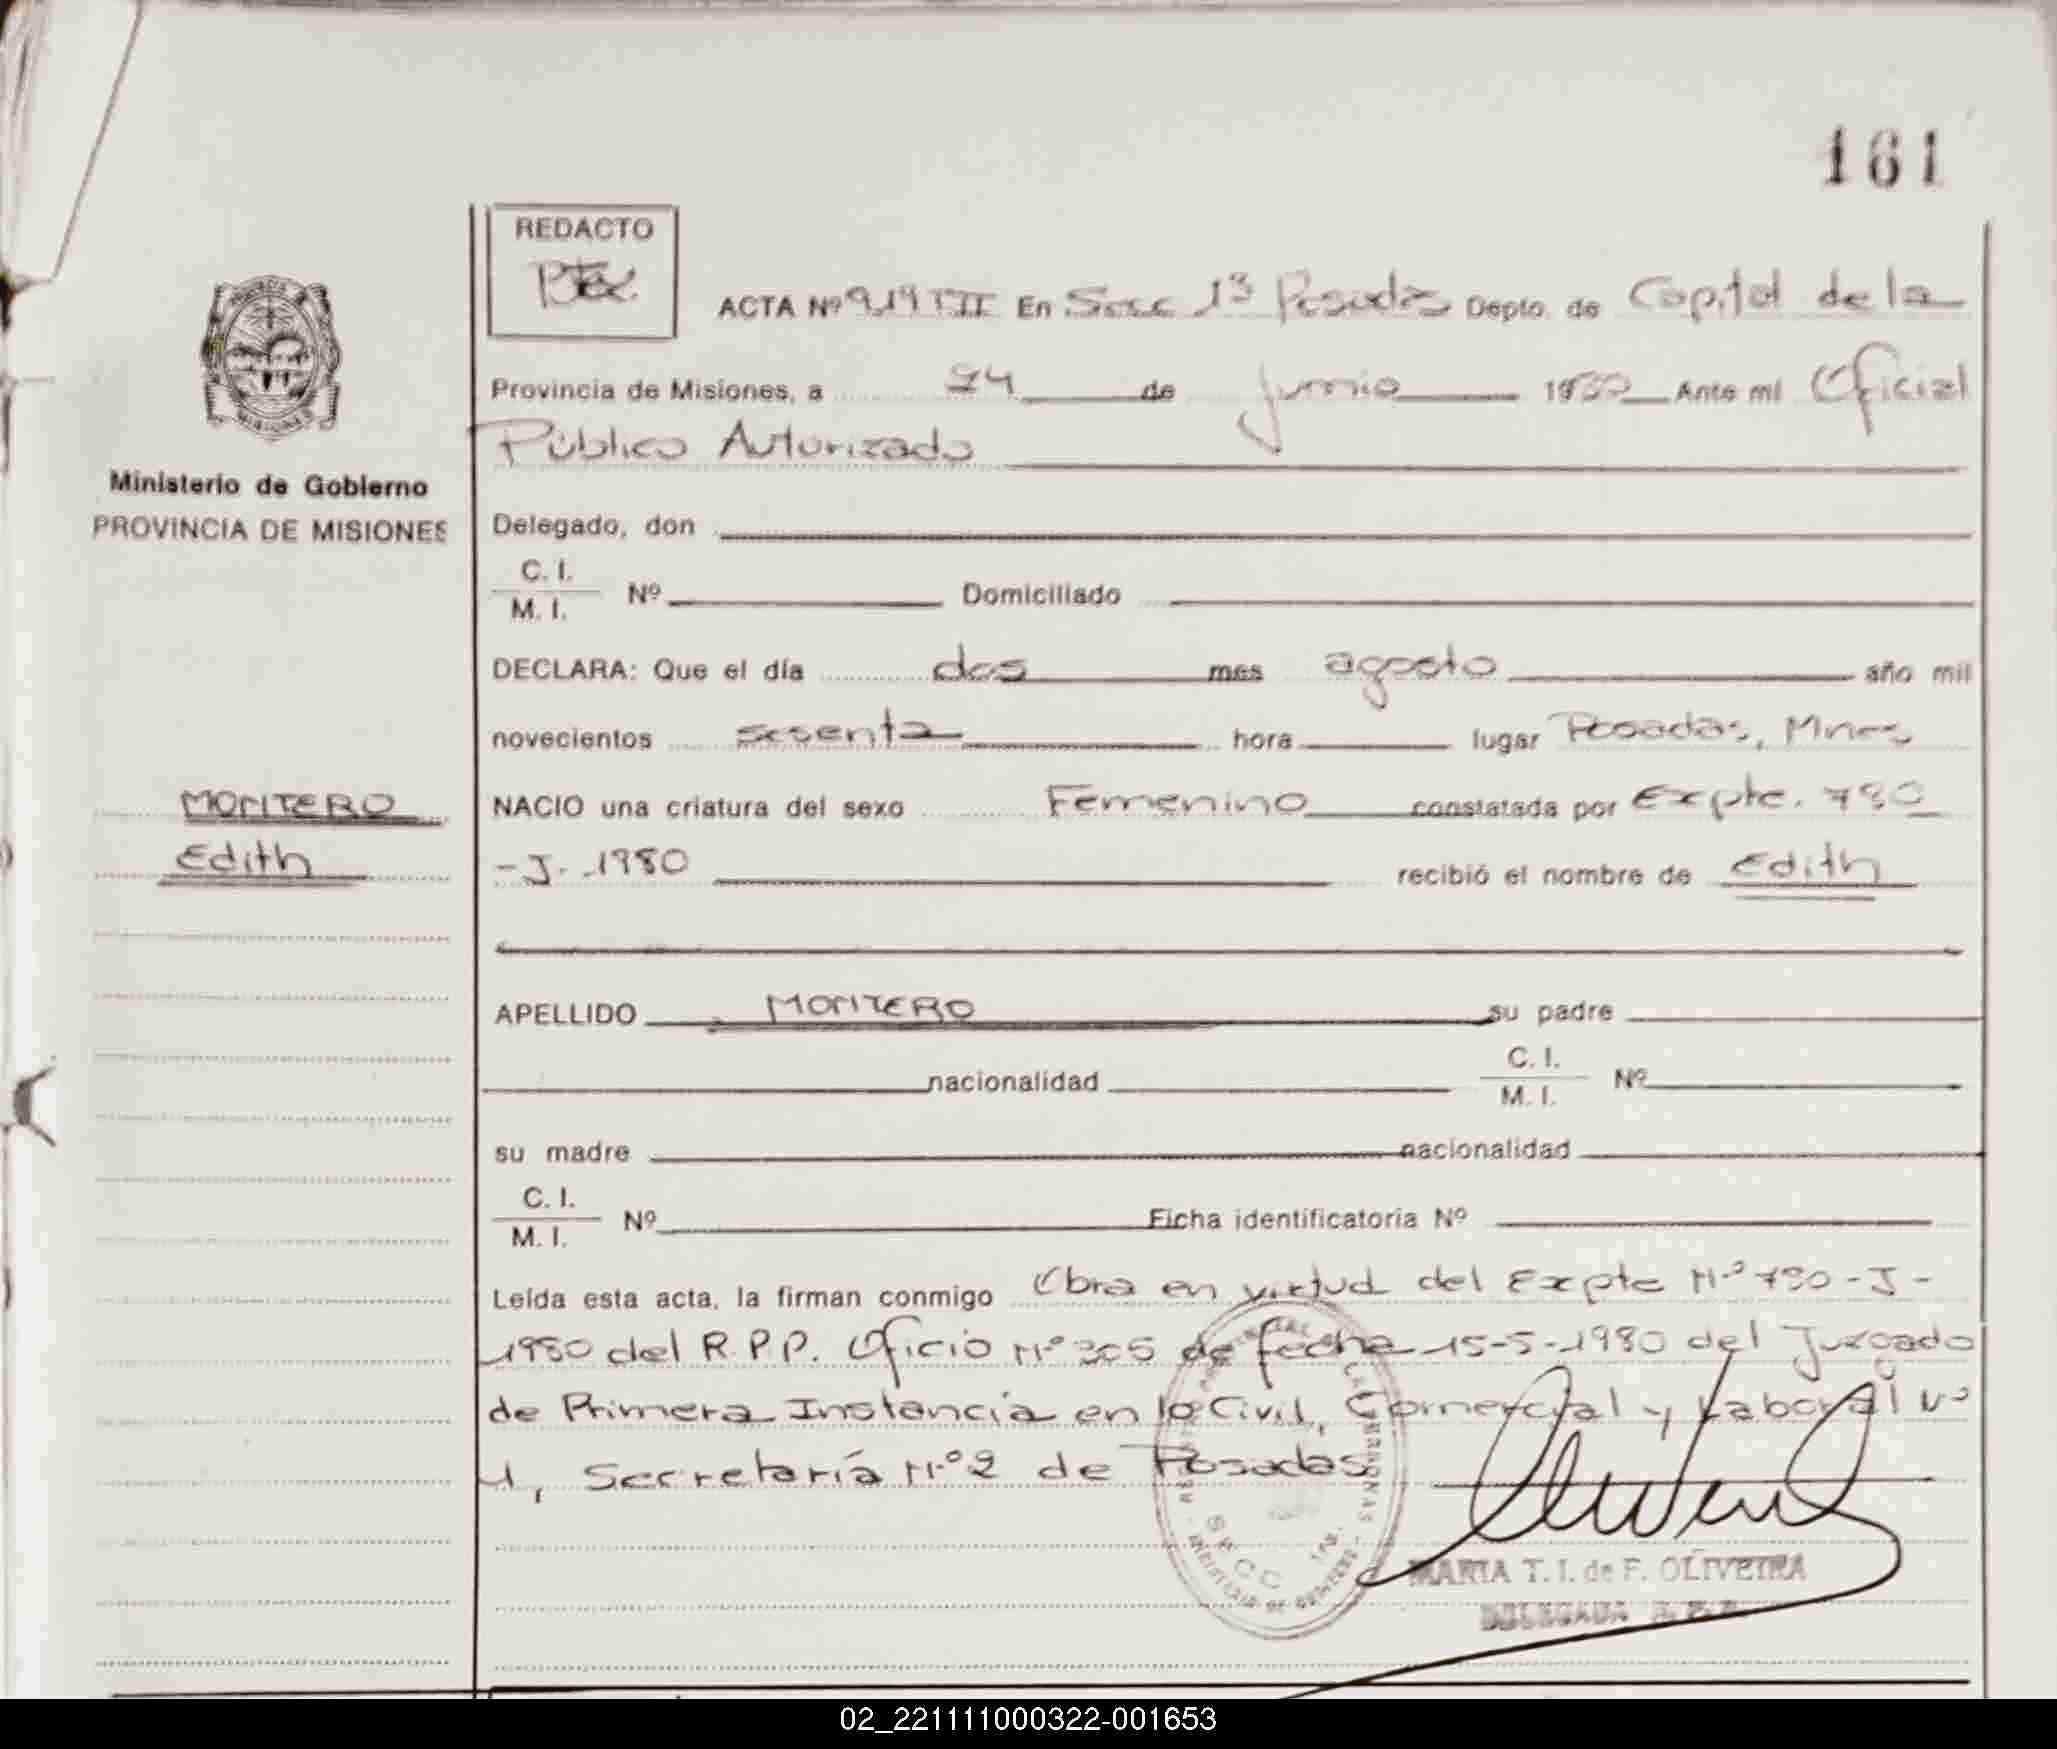 161
REDACTO
ACTA Nº 919 TII En Secc 1ª Posadas Depto. de Capital de la
Provincia de Misiones, a 24 de junio 1980 Ante mi Oficial
Público Autorizado
Ministerio de Gobierno
PROVINCIA DE MISIONES
Delegado, don
C. I.
M. I. Nº Domiciliado
DECLARA: Que el día dos mes agosto año mil
novecientos sesenta hora lugar Posadas, Mnes
MONTERO
Edith
NACIO una criatura del sexo Femenino constatada por Expte. 780
-J- 1980 recibió el nombre de Edith
APELLIDO MONTERO su padre
nacionalidad C. I.
M. I. Nº
su madre nacionalidad
C. I.
M. I. Nº Ficha identificatoria Nº
Leída esta acta, la firman conmigo Obra en virtud del Expte Nº 780-J-
1980 del R.P.P. Oficio Nº 305 de fecha 15-5-1980 del Juzgado
de Primera Instancia en lo Civil, Comercial y Laboral Nº
1, Secretaría Nº 2 de Posadas
SECC 1ra.
MARIA T. I. de F. OLIVEIRA
DELEGADA R. P. P.
02_221111000322-001653